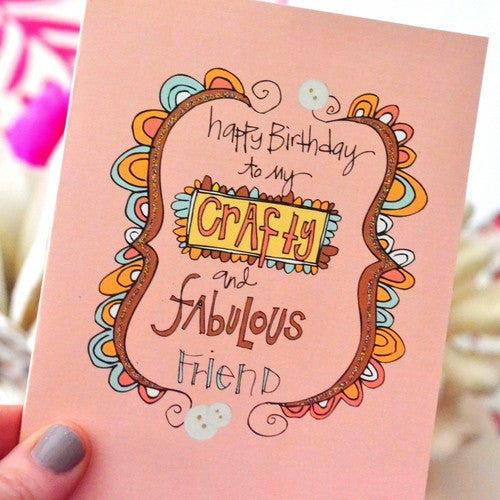 happy Birthday
to my
CRAfty
and
fABULOUS
FRIEND